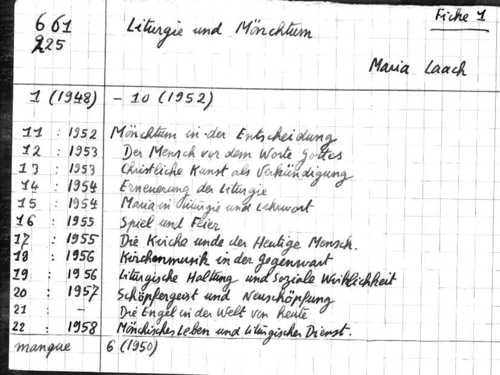 Fiche 1
661 Liturgie und Mönchtum
225
Maria Laach
1 (1948) – 10 (1952)
11 : 1952 Mönchtum in der Entscheidung
12 : 1953 Der Mensch vor dem Worte Gottes
13 : 1953 Christliche Kunst als Verkündigung
14 : 1954 Erneuerung der Liturgie
15 : 1954 Maria in Liturgie und Lehrwort
16 : 1955 Spiel und Feier
17 : 1955 Die Kirche unde der Heutige Mensch.
18 : 1956 Kirchenmusik in der Gegenwart
19 : 1956 Liturgische Haltung und Soziale Wirklichkeit
20 : 1957 Schöpfergeist und Neuschöpfung
21 : – Die Engel in der Welt von heute
22 : 1958 Mönchisches Leben und liturgischer Dienst.
manque 6 (1950)